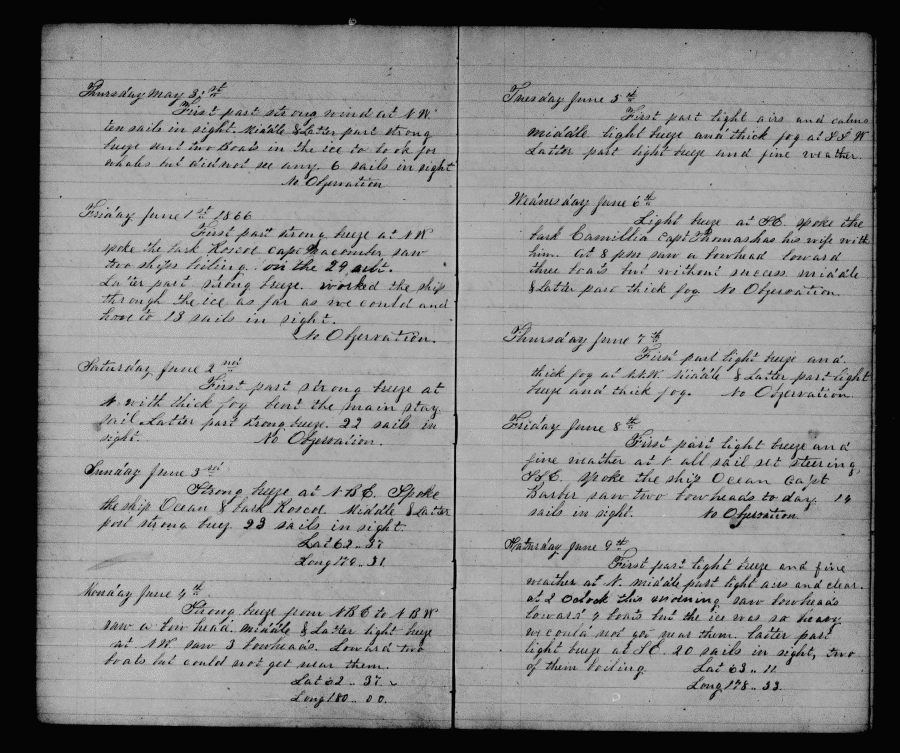 Thursday May 31st
First part strong wind at N.W.
ten sails in sight. Middle & Latter part strong
breeze sent two Boats in the ice to look for
whales but did not see any. 6 sails in sight
No Observation
Friday June 1st 1866
First part strong breeze at N.W
spoke the bark Roscoe Capt Macomber saw
two ships boiling. on the 29
Latter part strong breeze. worked the ship
through the ice as far as we could and
hove to 13 sails in sight.
No Observation.
Saturday June 2nd
First part strong breeze at
N. with thick fog bent the main stay
sail Latter part strong breeze. 22 sails in
sight. No Observation.
Sunday June 3rd
Strong breeze at N.B.E. Spoke
the ship Ocean & bark Roscoe. Middle & Latter
part strong breez. 23 sails in sight.
Lat 62 .. 37
Long 179 .. 31
Monday June 4th
Strong breeze from N.B.E to N.B.W
saw a bow head. Middle & Latter light breeze
at N.W. saw 3 bowheads. Loward two
boats but could not get near them.
Lat 62 .. 37
Long 180 .. 00.
Tuesday June 5th
First part light airs and calms
middle light breeze and thick fog at S.S.W.
Latter part light breeze and fine weather.
Wednesday June 6th
Light breeze at S.E. spoke the
bark Camillia Capt Thomas has his wife with
him. At 8 P.M saw a bowhead loward
three boats but without success middle
& Latter part thick fog No Observation.
Thursday June 7th
First part light breeze and
thick fog at Middle & Latter part light
breeze and thick fog. No Observation
Friday June 8th
First part light breeze and
fine weather at N all sail set steering
S.B.E. spoke the ship Ocean Capt
Barber saw two bowheads to day. 14
sails in sight. No Observation
Saturday June 9th
First part light breeze and fine
weather at N. middle part light airs and clear.
at 2 Oclock this morning saw bowheads
loward 4 boats but the ice was so heavy
we could not get near them. latter part
light breeze at S.E. 20 sails in sight, two
of them boiling Lat 63 .. 11
Long 178 .. 33